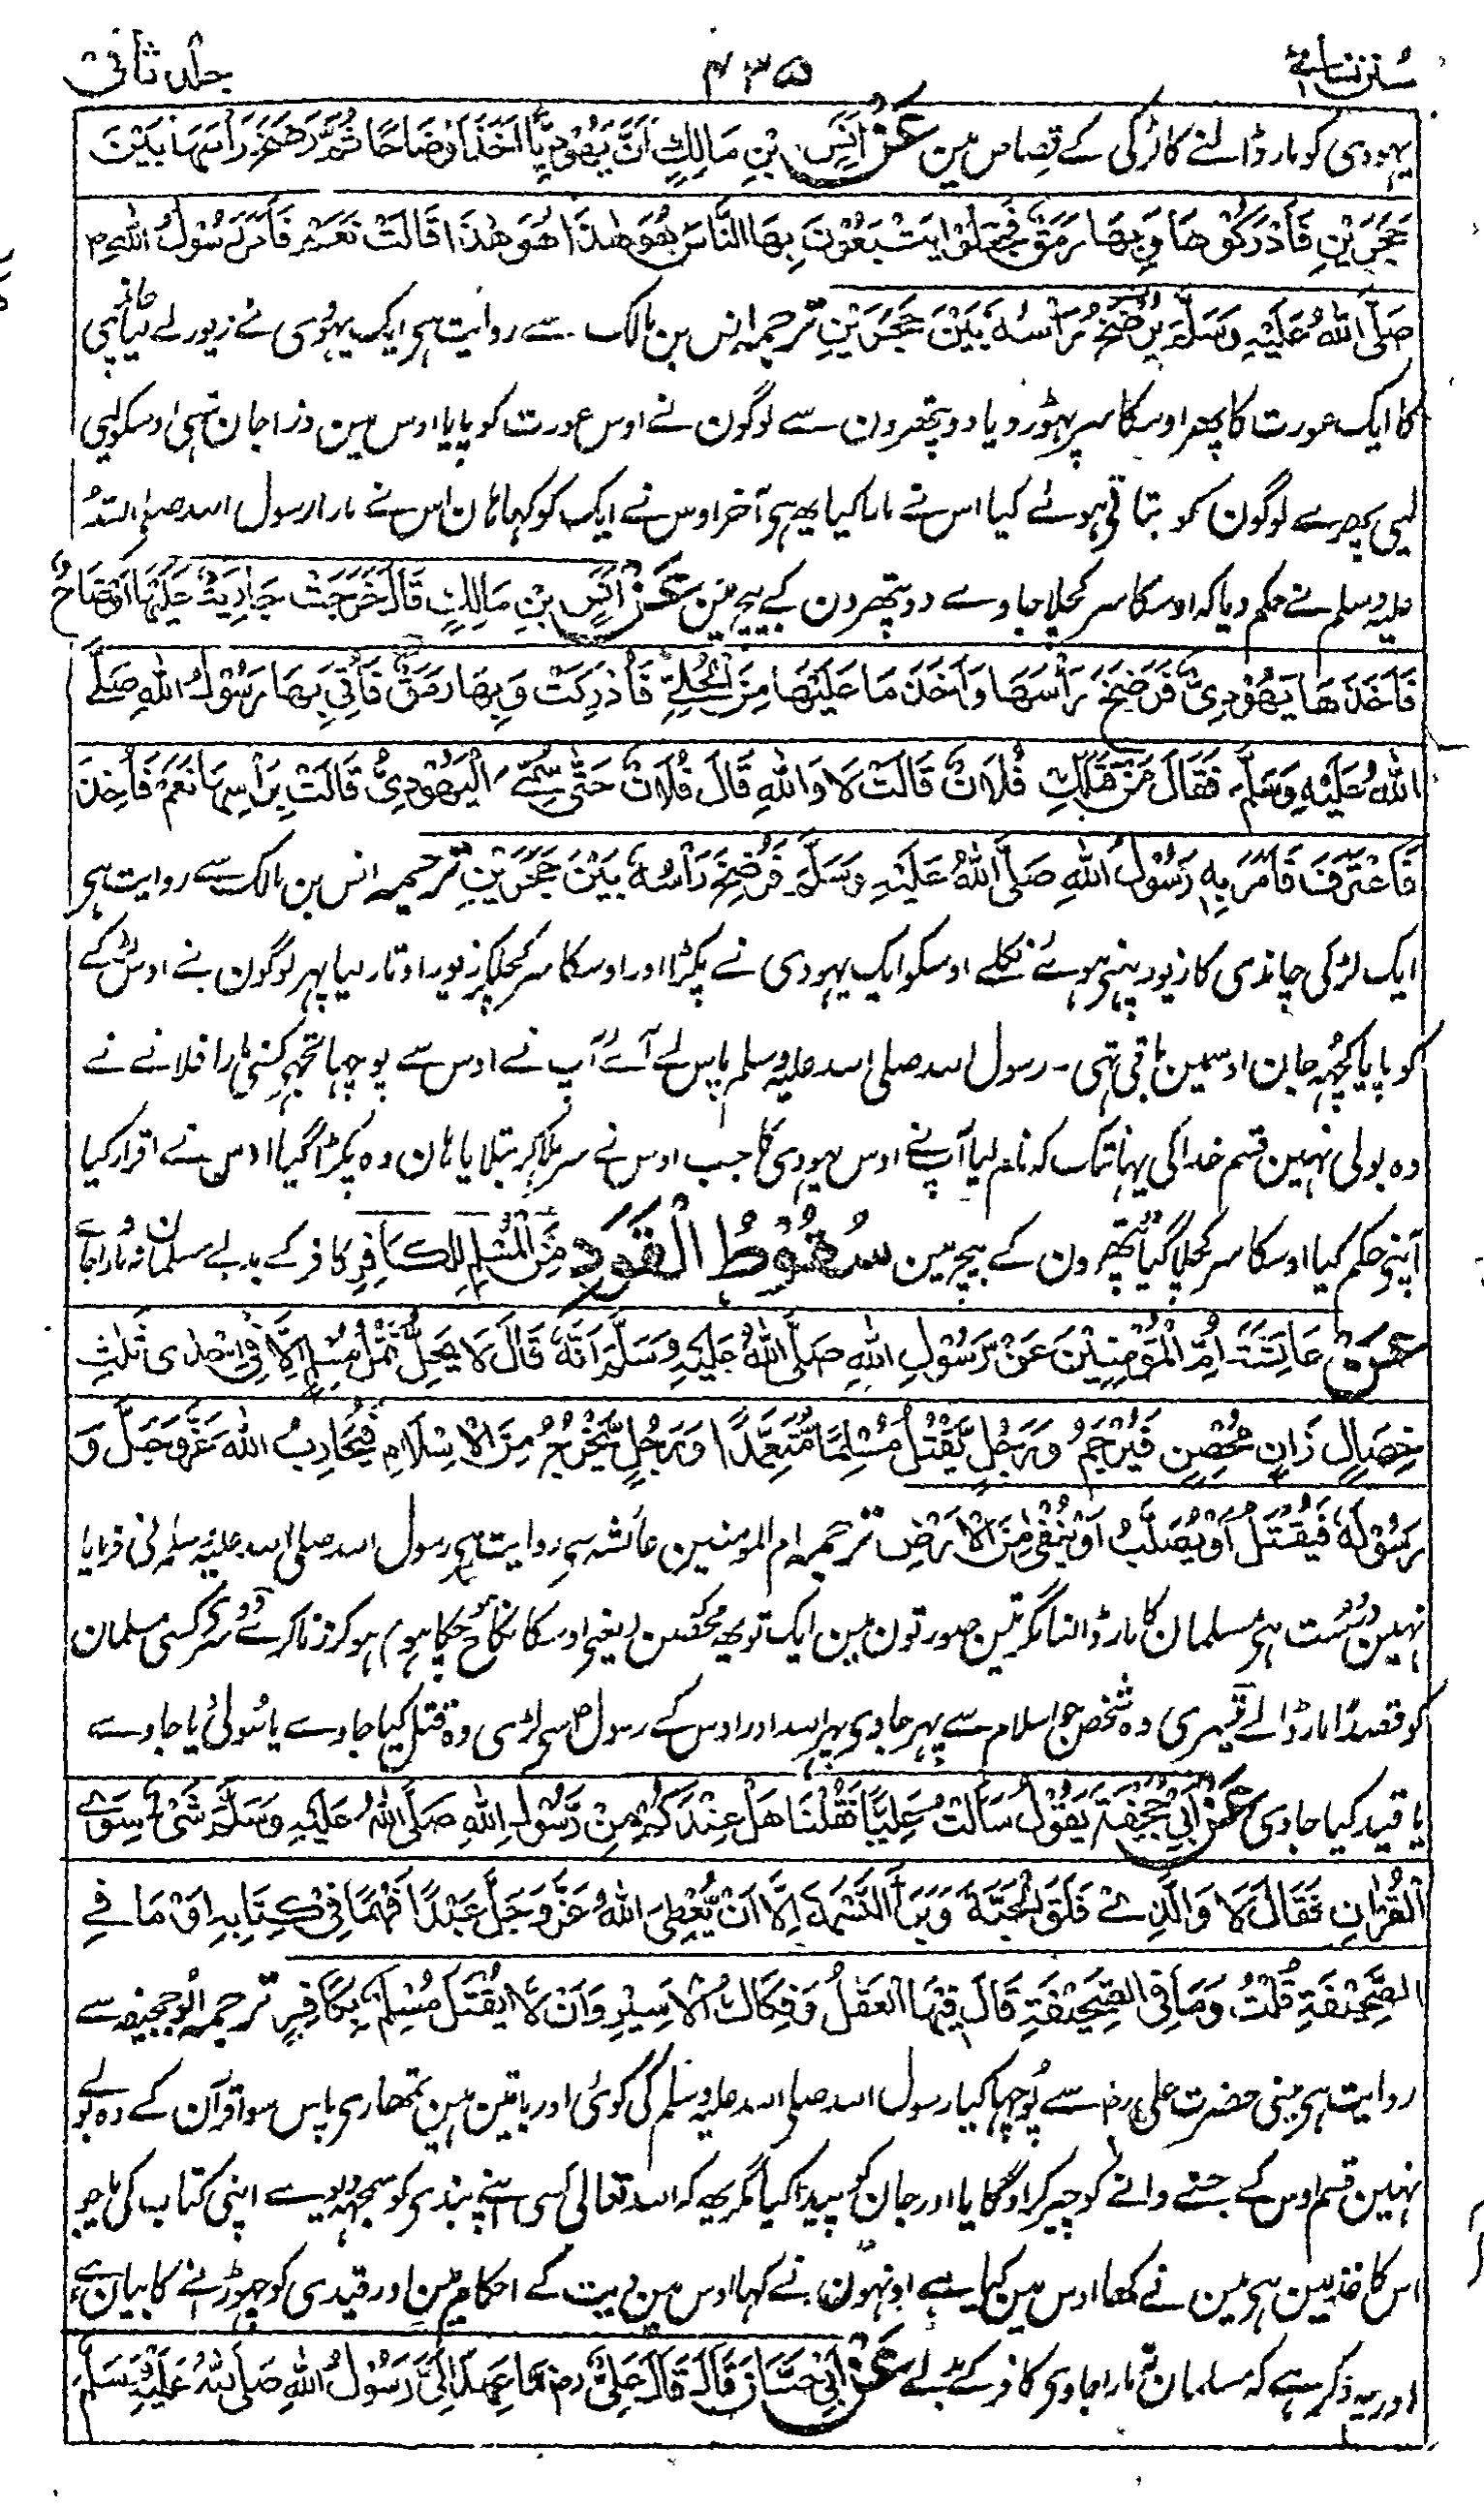 سنن نسائی ۴۳۵ جلد ثانی
یہودی کو مار ڈالنے کا لڑکی کے قصاص مین عَنْ اَنَسِ بْنِ مَالِكٍ اَنَّ يَهُوْدِيًّا اَخَذَ اَوْضَاحًا ثُمَّ رَضَخَ رَاْسَهَا بَيْنَ
حَجَرَيْنِ فَاَدْرَكُوْهَا وَبِهَا رَمَقٌ فَجَعَلُوْا يَتَّبِعُوْنَ بِهَا النَّاسَ هُوَ هٰذَا هُوَ هٰذَا قَالَتْ نَعَمْ فَاَمَرَ رَسُوْلُ اللهِ
صَلَّى اللهُ عَلَيْهِ وَسَلَّمَ يُرْضَخُ رَاْسُهٗ بَيْنَ حَجَرَيْنِ ترجمہ انس بن مالک سے روایت ہی ایک یہودی نے زیور لے لیا چاندی
کا ایک عورت کا پھر اوسکا سر پہوڑ دیا دو پتھرون سے لوگون نے اوس عورت کو پایا اوس مین ذرا جان تہی اوسکو لیی
لیی پھرے لوگون کو بتاتی ہوئے کیا اس نے مارا کیا یہ ہی آخر اوس نے ایک کو کہا ہان اس نے مارا رسول اللہ صلی اللہ
علیہ وسلم نے حکم دیا کہ اوسکا سر کچلا جاوے دو پتھرون کے بیچ مین عَنْ اَنَسِ بْنِ مَالِكٍ قَالَ خَرَجَتْ جَارِيَةٌ عَلَيْهَا اَوْضَاحٌ
فَاَخَذَهَا يَهُوْدِيٌّ فَرَضَخَ رَاْسَهَا وَاَخَذَ مَا عَلَيْهَا مِنَ الْحُلِيِّ فَاُدْرِكَتْ وَبِهَا رَمَقٌ فَاُتِيَ بِهَا رَسُوْلُ اللهِ صَلَّى
اللهُ عَلَيْهِ وَسَلَّمَ فَقَالَ مَنْ قَتَلَكِ فُلَانٌ قَالَتْ لَا وَاللهِ قَالَ فُلَانٌ حَتّٰى سَمَّى الْيَهُوْدِيَّ قَالَتْ بِرَاْسِهَا نَعَمْ فَاُخِذَ
فَاعْتَرَفَ فَاَمَرَ بِهٖ رَسُوْلُ اللهِ صَلَّى اللهُ عَلَيْهِ وَسَلَّمَ فَرُضِخَ رَاْسُهٗ بَيْنَ حَجَرَيْنِ ترجمہ انس بن مالک سے روایت ہی
ایک لڑکی چاندی کا زیور پہنی ہوئے نکلے اوسکو ایک یہودی نے پکڑا اور اوسکا سر کچلکر زیور اوتار لیا پہر لوگون نے اوس لڑکے
کو پایا کچھہ جان اوسمین باقی تہی ۔ رسول اللہ صلی اللہ علیہ وسلم پاس لے آئے آپ نے اوس سے پوچہا تجھی کسنی مارا فلانے نے
وہ بولی نہین قسم خدا کی یہانتک کہ نام لیا آپنے اوس یہودی کا جب اوس نے سر ہلا کر بتلایا ہان وہ پکڑا گیا اوس نے اقرار کیا
آپنی حکم کیا اوسکا سر کچلا گیا پتھرون کے بیچ مین سُقُوْطُ الْقَوَدِ مِنَ الْمُسْلِمِ لِلْكَافِرِ کافر کے بدلے مسلمان نہ مارا جاے
عَنْ عَائِشَةَ اُمِّ الْمُؤْمِنِيْنَ عَنْ رَسُوْلِ اللهِ صَلَّى اللهُ عَلَيْهِ وَسَلَّمَ اَنَّهٗ قَالَ لَا يَحِلُّ قَتْلُ مُسْلِمٍ اِلَّا فِيْ اِحْدٰى ثَلٰثِ
خِصَالٍ زَانٍ مُحْصِنٍ فَيُرْجَمُ وَرَجُلٍ يَّقْتُلُ مُسْلِمًا مُّتَعَمِّدًا وَرَجُلٍ يَّخْرُجُ مِنَ الْاِسْلَامِ فَيُحَارِبُ اللهَ عَزَّ وَجَلَّ وَ
رَسُوْلَهٗ فَيُقْتَلُ اَوْ يُصَلَّبُ اَوْ يُنْفٰى مِنَ الْاَرْضِ ترجمہ ام المومنین عائشہ سی روایت ہی رسول اللہ صلی اللہ علیہ وسلم نی فرمایا
نہین درست ہی مسلمان کا مار ڈالنا مگر تین صورتون مین ایک تو یہ محصن (یعنی اوسکا نکاح ہو چکا ہو) ہو کر زنا کرے دوسری کسی مسلمان
کو قصداً مار ڈالے تیسری وہ شخص جو اسلام سے پہر جاوی پہر اللہ اور اوس کے رسول سے لڑی وہ قتل کیا جاوے یا سولی یا جاوے
یا قید کیا جاوی عَنْ اَبِيْ جُحَيْفَةَ يَقُوْلُ سَاَلْتُ عَلِيًّا فَقُلْنَا هَلْ عِنْدَكُمْ مِنْ رَّسُوْلِ اللهِ صَلَّى اللهُ عَلَيْهِ وَسَلَّمَ شَيْءٌ سِوَى
الْقُرْاٰنِ فَقَالَ لَا وَالَّذِيْ فَلَقَ الْحَبَّةَ وَبَرَاَ النَّسَمَةَ اِلَّا اَنْ يُّعْطِيَ اللهُ عَزَّ وَجَلَّ عَبْدًا فَهْمًا فِيْ كِتَابِهٖ اَوْ مَا فِيْ
الصَّحِيْفَةِ قُلْتُ وَمَا فِي الصَّحِيْفَةِ قَالَ فِيْهَا الْعَقْلُ وَفِكَاكُ الْاَسِيْرِ وَاَنْ لَّا يُقْتَلَ مُسْلِمٌ بِكَافِرٍ ترجمہ ابو جحیفہ سے
روایت ہی مینی حضرت علی رض سے پوچہا کیا رسول اللہ صلی اللہ علیہ وسلم کی کوئی اور باتین ہین تمھاری پاس سوا قرآن کے وہ بولے
نہین قسم اوس کے جسنے دانے کو چیر کر اوگایا اور جان کو پیدا کیا مگر یہ کہ اللہ تعالی کسی اپنے بندی کو سمجہہ دیوے اپنی کتاب کی یا جو
اس کاغذ مین ہی مین نے کہا اوس مین کیا ہے اونہون نے کہا اوس مین دیت کے احکام ہین اور قیدی کو چہوڑانے کا بیان ہے
اور یہ ذکر ہے کہ مسلمان نہ مارا جاوی کافر کے بدلے عَنْ اَبِيْ حَسَّانَ قَالَ قَالَ عَلِيٌّ رض مَا عَهِدَ اِلَيَّ رَسُوْلُ اللهِ صَلَّى اللهُ عَلَيْهِ وَسَلَّمَ